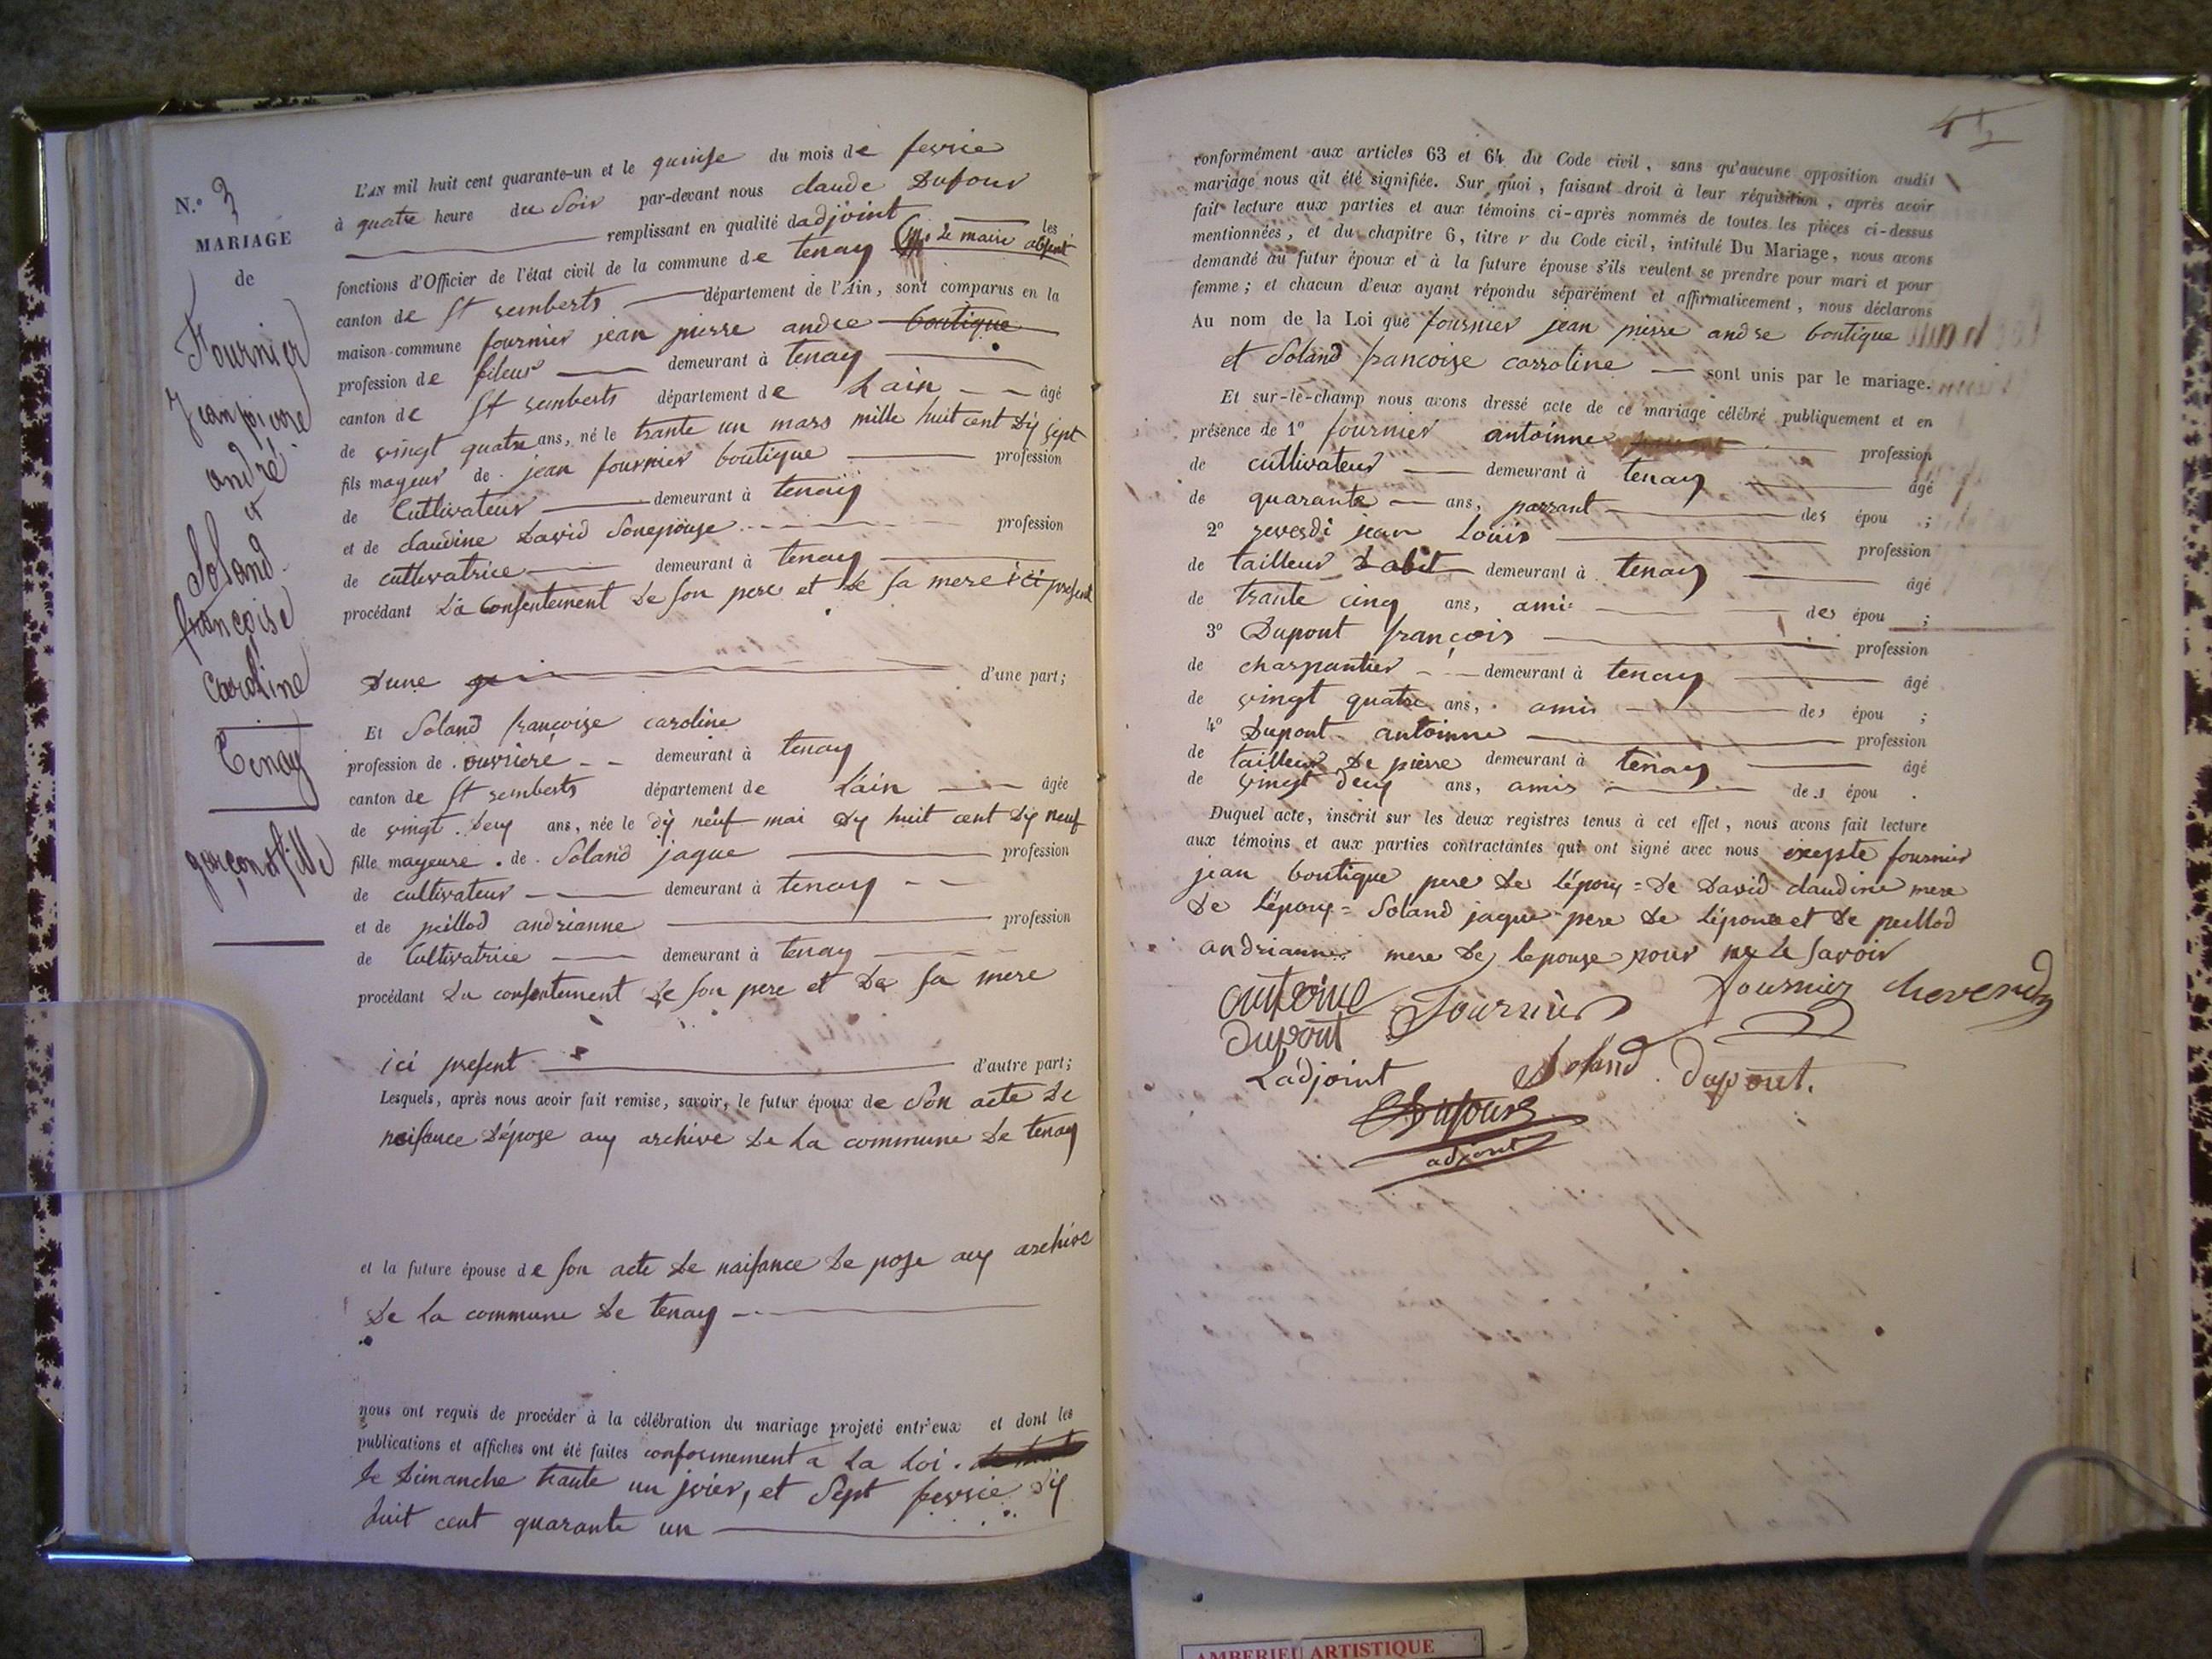 N.º 3
MARIAGE
de
Fournier
Jean pierre
andré
et
Soland
françoise
Caroline
Tenay
garçon et fille
L'AN mil huit cent quarante-un et le quinse du mois de fevrie
à quatre heure du Soir par-devant nous claude Dufour
remplissant en qualité dadjoint les
fonctions d'Officier de l'état civil de la commune de tenay le maire absent
canton de St remberts département de l'Ain, sont comparus en la
maison commune fournier jean pierre andre boutique
profession de fileur demeurant à tenay
canton de St remberts département de Lain âgé
de vingt quatre ans, né le trante un mars mille huit cent Dy sept
fils mayeur de jean fournier boutique profession
de Cultivateur demeurant à tenay
et de claudine David Sonepouse profession
de cultivatrice demeurant à tenay
procédant Du Consentement De son pere et De sa mere ici present
Dune d'une part;
Et Soland françoise caroline
profession de ouvriere demeurant à tenay
canton de St remberts département de Lain âgée
de vingt Deuy ans, née le dy neuf mai Dy huit cent Dy neuf
fille mayeure de Soland jaque profession
de cultivateur demeurant à tenay
et de peillod andrianne profession
de Cultivatrice demeurant à tenay
procédant Du consentement De son pere et De sa mere
ici present d'autre part;
Lesquels, après nous avoir fait remise, savoir, le futur époux de Son acte De
naisance Dépose auy archive De La commune De tenay
et la future épouse de son acte De naisance De pose auy archive
De La commune De tenay
nous ont requis de procéder à la célébration du mariage projeté entr'eux et dont les
publications et affiches ont été faites conformement a La Loi.
Le Dimanche trante un jvier, et Sept fevrie Dy
huit cent quarante un
conformément aux articles 63 et 64 du Code civil, sans qu'aucune opposition audit
mariage nous ait été signifiée. Sur quoi, faisant droit à leur réquisition, après avoir
fait lecture aux parties et aux témoins ci-après nommés de toutes les pièces ci-dessus
mentionnées, et du chapitre 6, titre v du Code civil, intitulé Du Mariage, nous avons
demandé au futur époux et à la future épouse s'ils veulent se prendre pour mari et pour
femme; et chacun d'eux ayant répondu séparément et affirmativement, nous déclarons
Au nom de la Loi que fournier jean pierre andre boutique
et Soland francoise carroline sont unis par le mariage.
Et sur-le-champ nous avons dressé acte de ce mariage célébré publiquement et en
présence de 1º fournier antoinne profession
de cultivateur demeurant à tenay âgé
de quarante ans, parrant des épou ;
2º reverdi jean Louis profession
de tailleur Dabit demeurant à tenay âgé
de trante cinq ans, ami des épou ;
3º Dupont françois profession
de charpantier demeurant à tenay âgé
de vingt quatre ans, amis des épou ;
4º Dupont antoinne profession
de tailleur De pierre demeurant à tenay âgé
de vingt deuy ans, amis des épou .
Duquel acte, inscrit sur les deux registres tenus à cet effet, nous avons fait lecture
aux témoins et aux parties contractantes qui ont signé avec nous exepte fournier
jean boutique pere De Lépouy = De David claudine mere
De Lépouy = Soland jaque pere De Lépouse et De peillod
andrianne mere De Lepouse pour ne Le Savoir
antoine Fournier fournier
Dupont
Ladjoint Soland Dupont.
Dufour
adjoint
AMBERIEU ARTISTIQUE